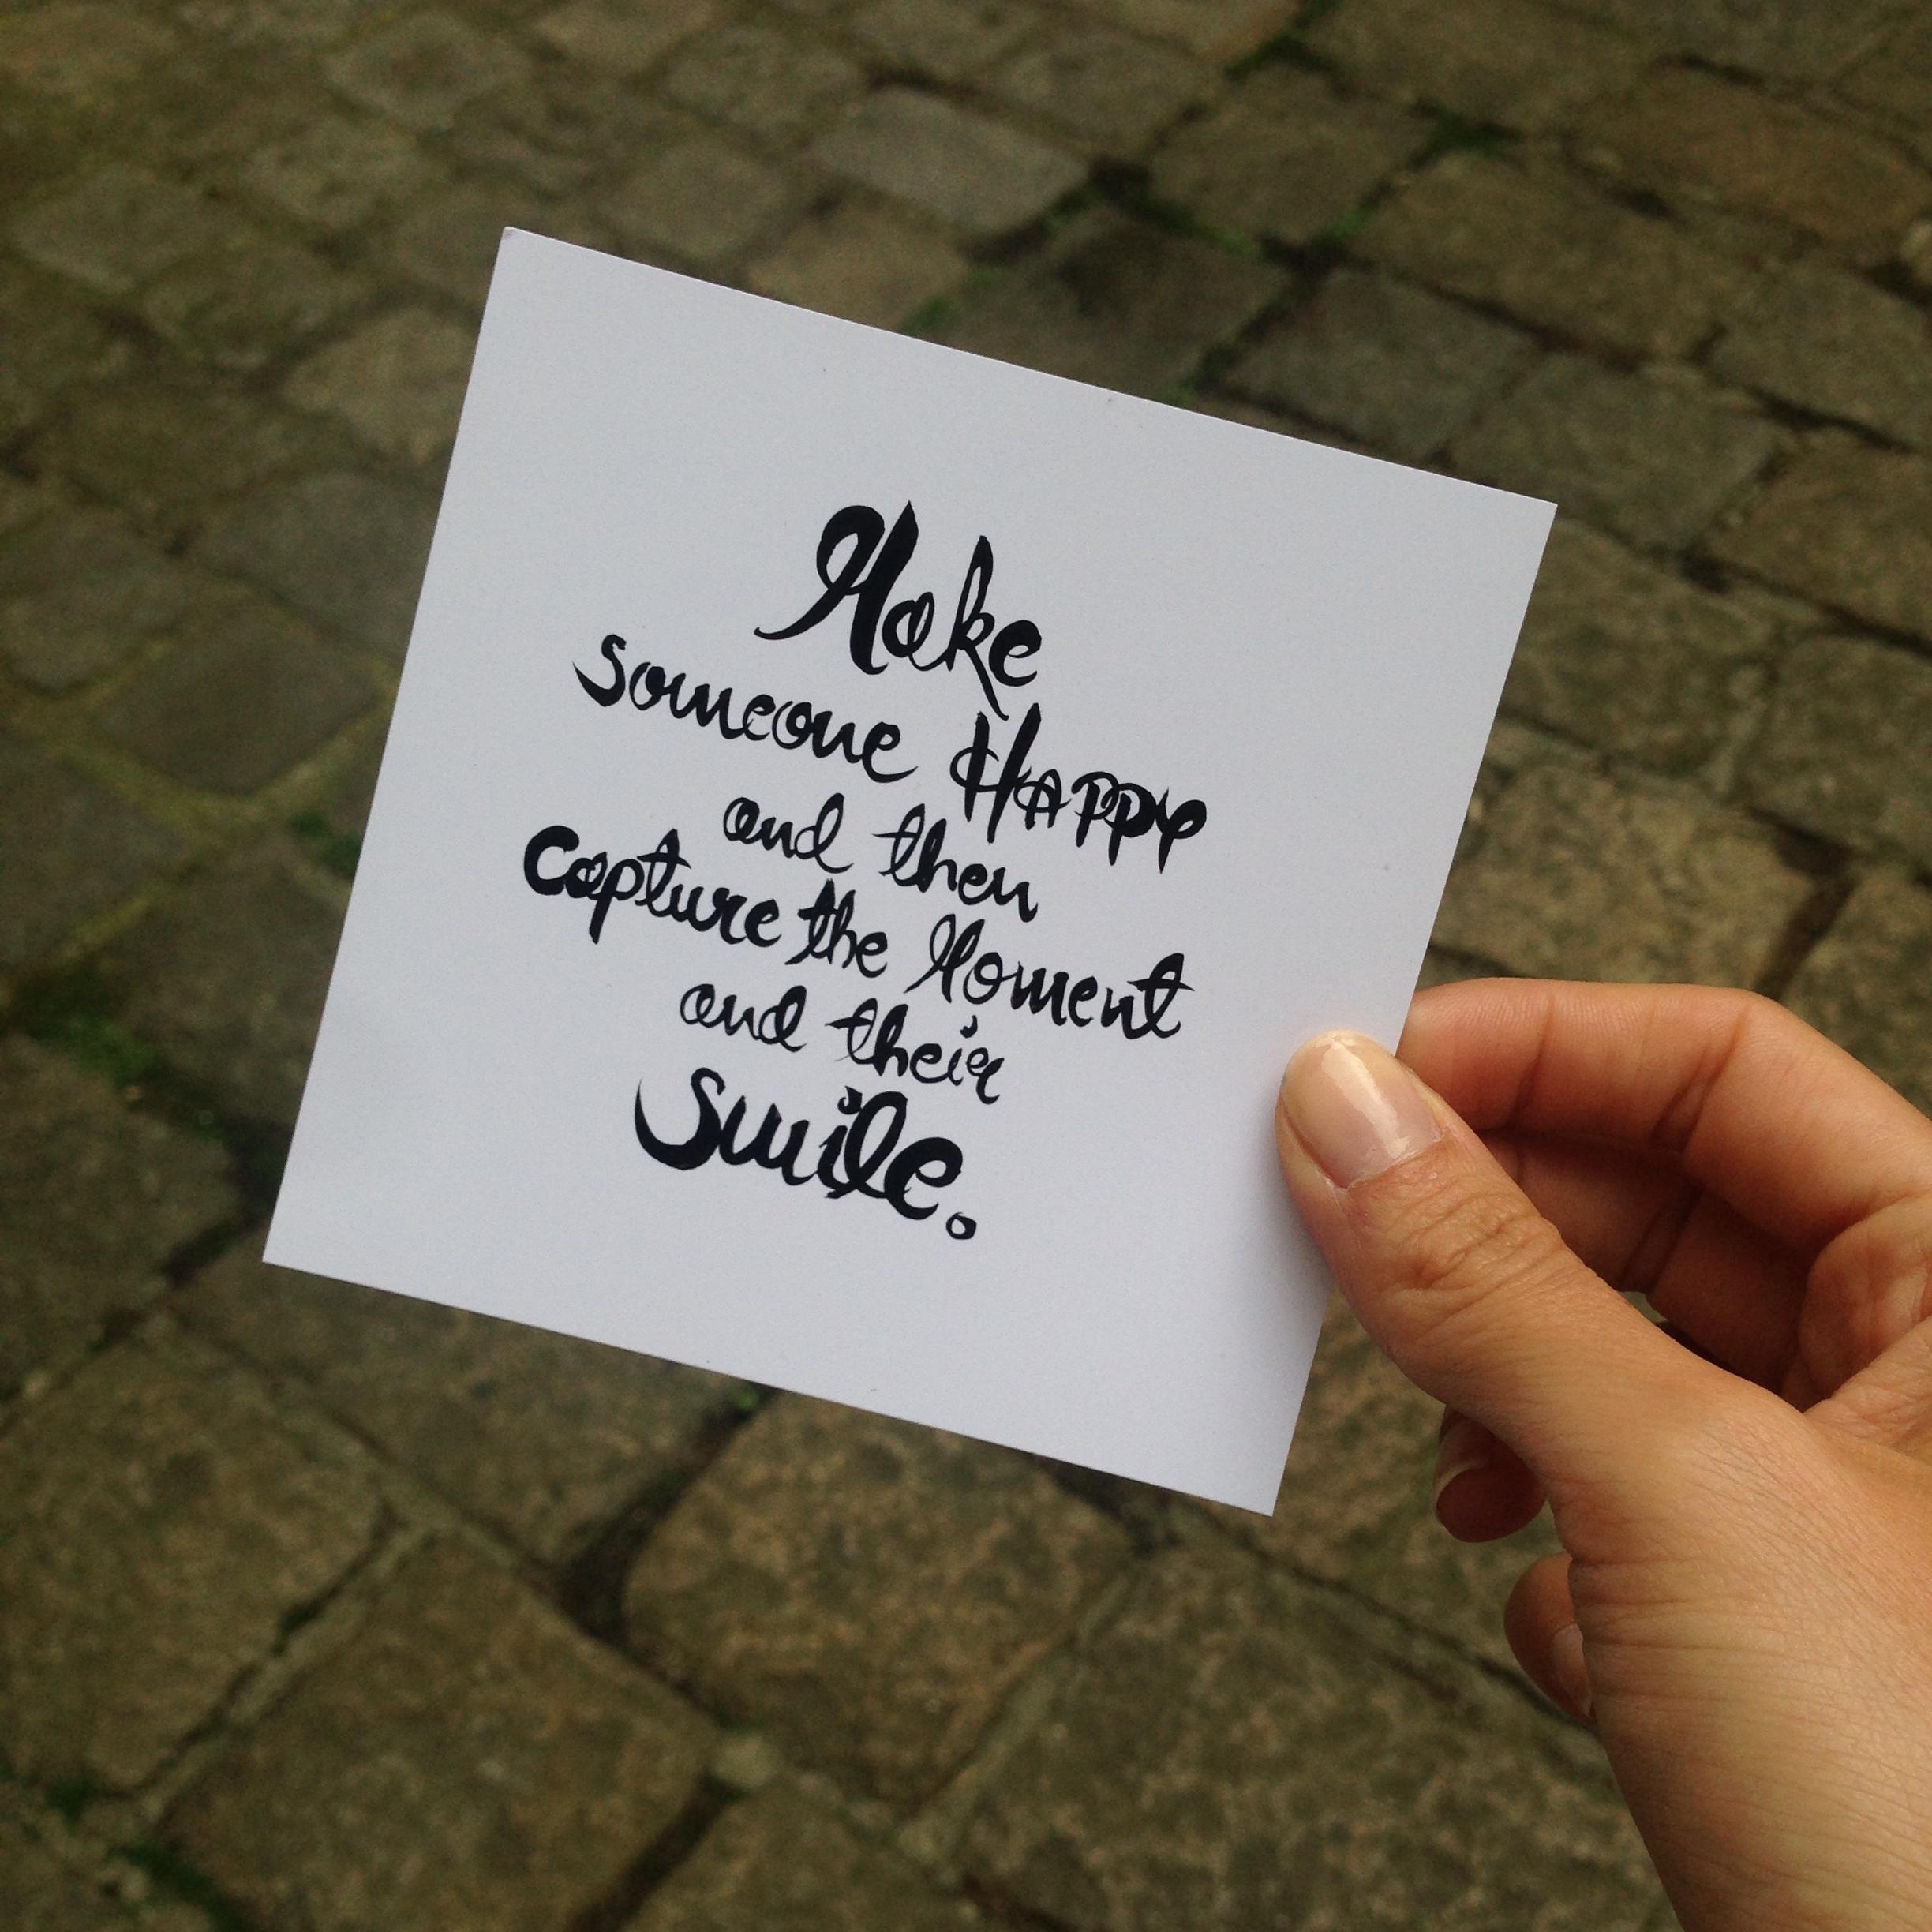 Make
someone HAPPY
and then
Capture the Moment
and their
Smile.